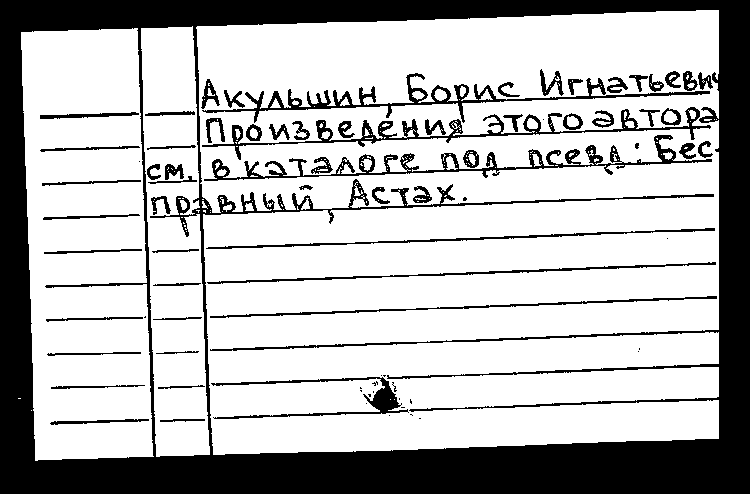 Акульшин, Борис Игнатьевич
Произведения этого автора
см. в каталоге под псевд: Бес-
правный, Астах.